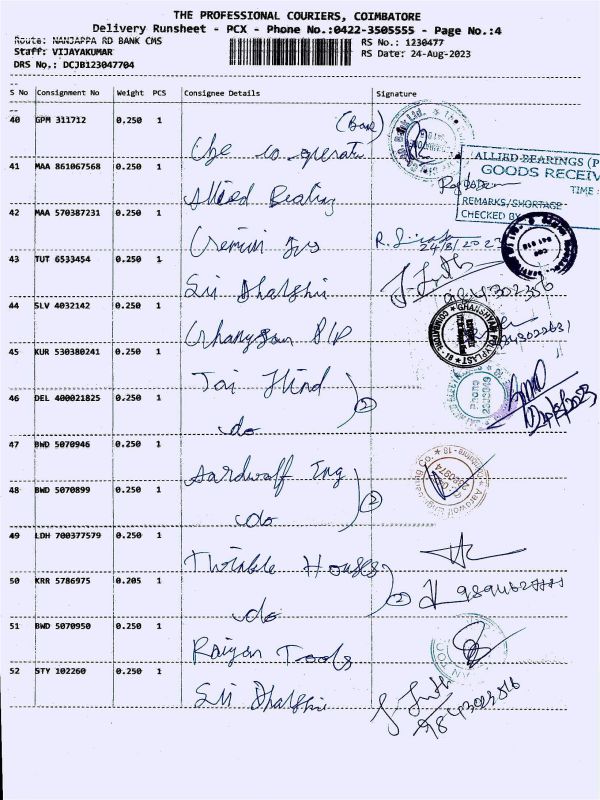 THE PROFESSIONAL COURIERS, COIMBATORE
Delivery Runsheet - PCX - Phone No.:0422-3505555 - Page No.:4
Route: NANJAPPA RD BANK CMS
RS No.: 1230477
Staff: VIJAYAKUMAR
RS Date: 24-Aug-2023
DRS No.: DCJB123047704
S No Consignment No Weight PCS Consignee Details Signature
40 GPM 311712 0.250 1 (Bank)
The co-operati
41 MAA 861067568 0.250 1
Allied Bearing
ALLIED BEARINGS (P
GOODS RECEIV
TIME :
REMARKS/SHORTAGE
CHECKED BY
42 MAA 570387231 0.250 1
24/8/2023
43 TUT 6533454 0.250 1
Sri Dharshini
44 SLV 4032142 0.250 1
GHANSHYAM POLYPLAST
45 KUR 530380241 0.250 1
Jai Hind
46 DEL 400021825 0.250 1
do
2
47 BWD 5070946 0.250 1
Aardwolf Eng
48 BWD 5070899 0.250 1
do
2
49 LDH 700377579 0.250 1
Twinkle Houses
50 KRR 5786975 0.205 1
do
2
51 BWD 5070950 0.250 1
Raiyan Tools
52 STY 102260 0.250 1
Sri Dharshini